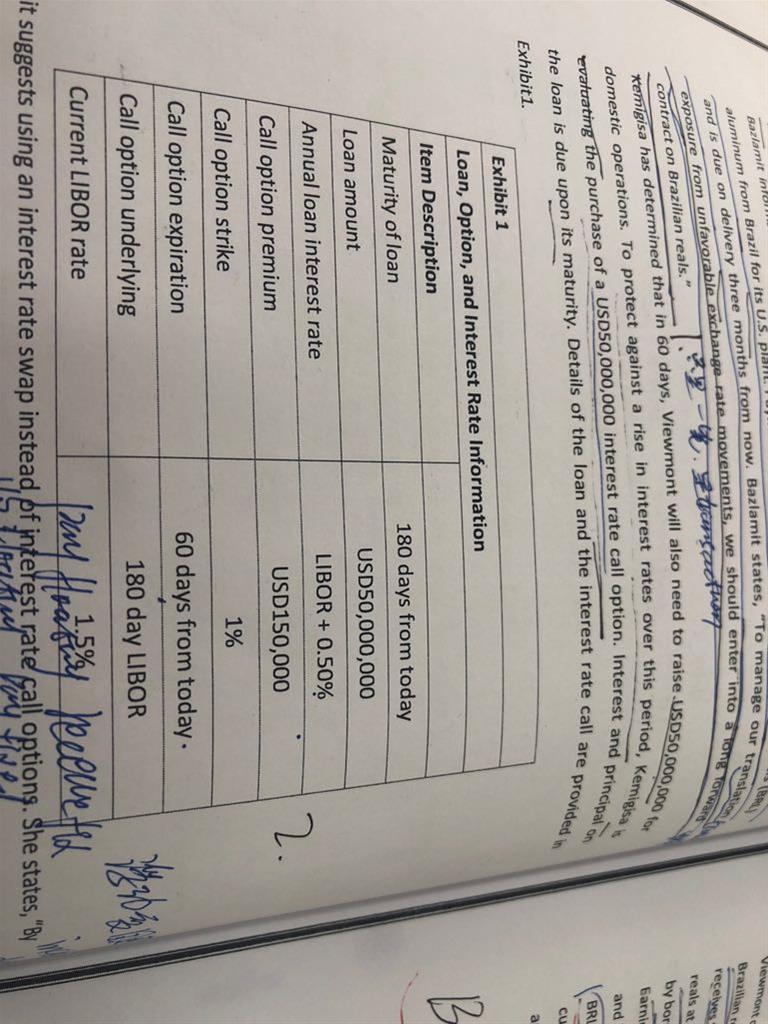 Bazlamit
aluminum from Brazil for its U.S. plant.
and is due on delivery three months from now. Bazlamit states, "To manage our translation
exposure from unfavorable exchange rate movements, we should enter into a long forward
contract on Brazilian reals."
Kemigisa has determined that in 60 days, Viewmont will also need to raise USD50,000,000 for
domestic operations. To protect against a rise in interest rates over this period, Kemigisa is
evaluating the purchase of a USD50,000,000 interest rate call option. Interest and principal on
the loan is due upon its maturity. Details of the loan and the interest rate call are provided in
Exhibit1.
Exhibit 1
Loan, Option, and Interest Rate Information
Item Description
Maturity of loan 180 days from today
Loan amount USD50,000,000
Annual loan interest rate LIBOR + 0.50%
Call option premium USD150,000
Call option strike 1%
Call option expiration 60 days from today
Call option underlying 180 day LIBOR
Current LIBOR rate 1.5%
2.
it suggests using an interest rate swap instead of interest rate call options. She states, "By
Viewmont
Brazilian
receives
reals at
by bor
Earni
and
(BRL
cu
a
B